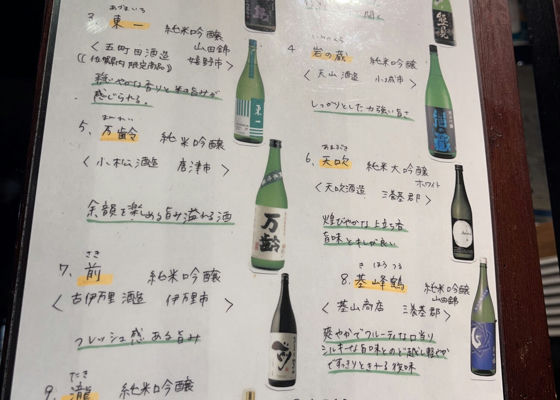 あづまいち
3. 東一 純米吟醸
山田錦
〈五町田酒造 嬉野市〉
((佐賀県内限定商品))
穏やかな香りと米の旨みが
感じられる。
いわのくら
4. 岩の蔵 純米吟醸
〈天山酒造 小城市〉
しっかりとした力強い旨さ
まんれい
5. 万齢 純米吟醸
〈小松酒造 唐津市〉
余韻を楽しめる旨み溢れる酒
あまぶき
6. 天吹 純米大吟醸
ホワイト
〈天吹酒造 三養基郡〉
煌びやかな上立ち香
旨味とキレが良い
さき
7. 前 純米吟醸
〈古伊万里酒造 伊万里市〉
フレッシュ感ある旨み
き ほう つる
8. 基峰鶴 純米吟醸
山田錦
〈基山商店 三養基郡〉
爽やかでフルーティな口当り
シルキーな旨味とのど越し軽やか
ですっきりときれる後味
たき
9. 瀧 純米吟醸
東一
万齢